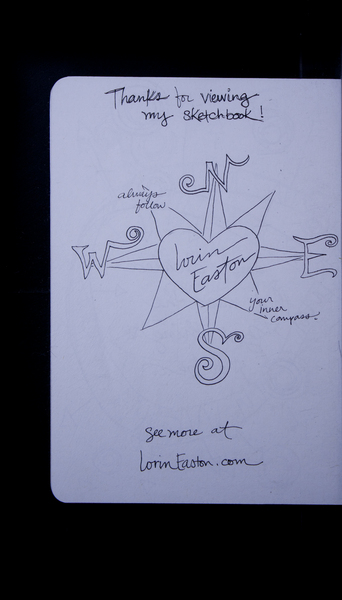 Thanks for viewing
my sketchbook!
N
always
follow
W
Lorin
Easton
E
your
inner
compass.
S
see more at
LorinEaston.com